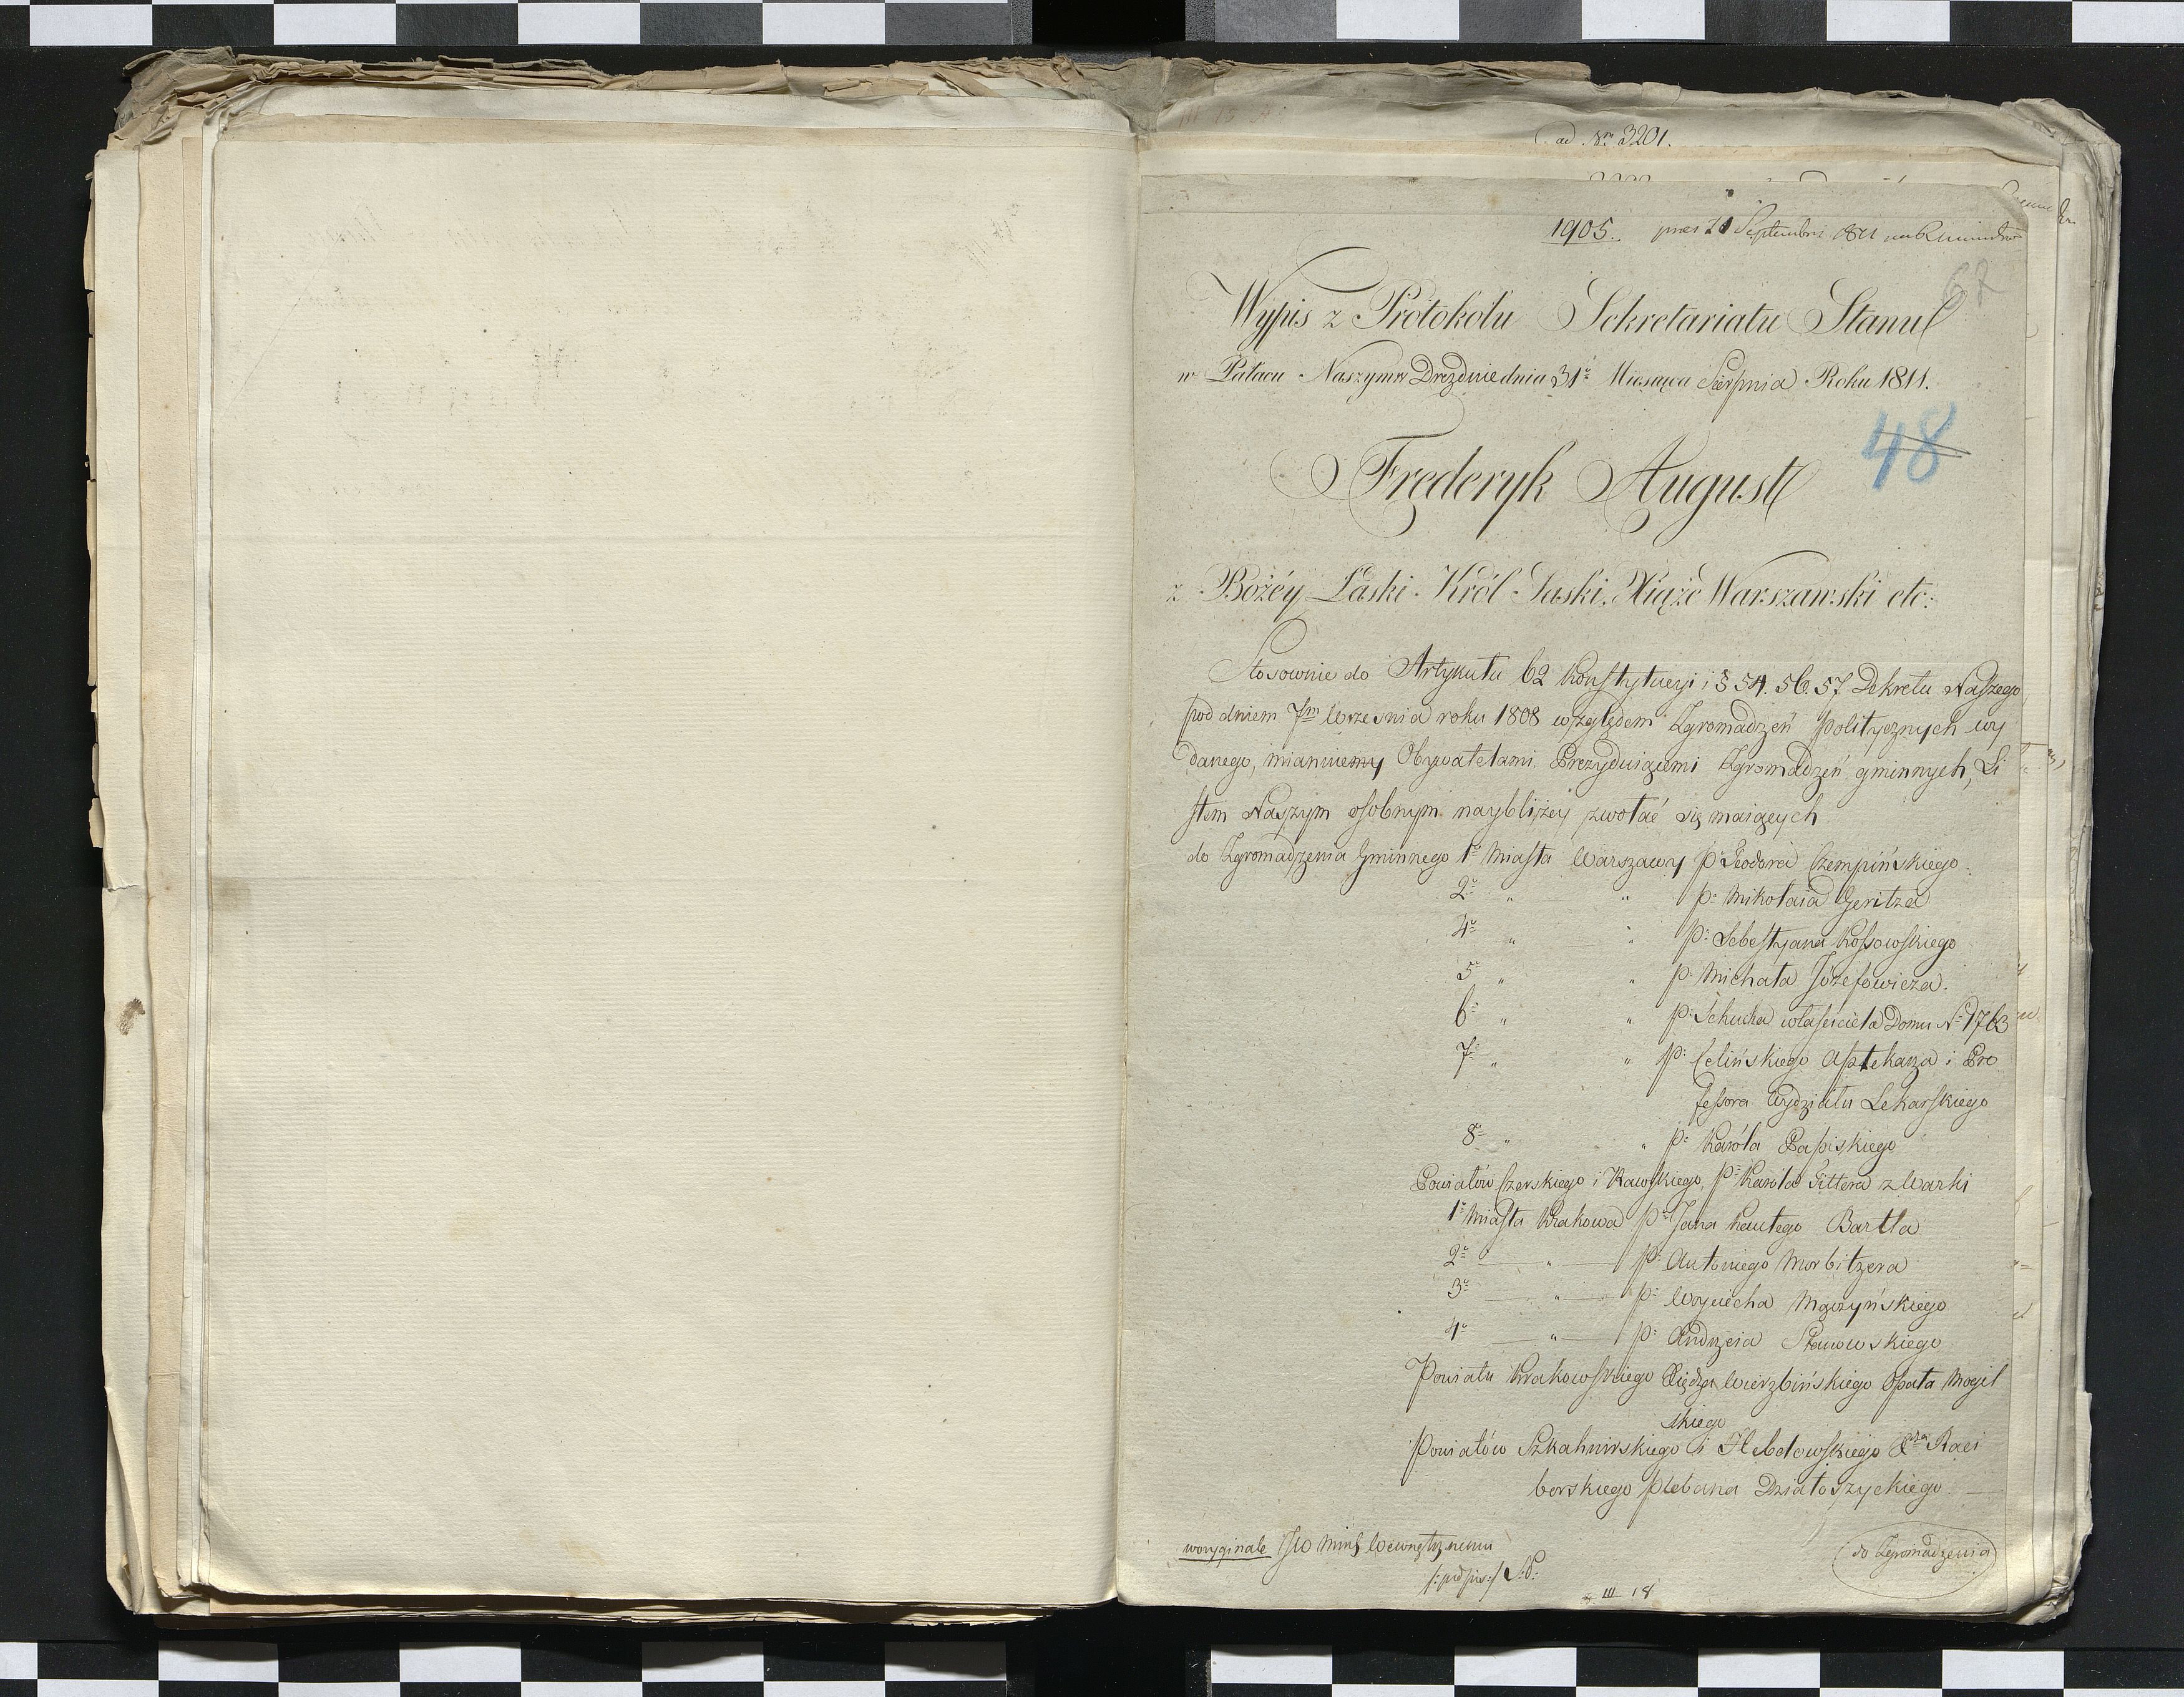 ad Nr. 3201.
1905. præs 21 Septembris 1811
62
Wypis z Protokołu Sekretariatu Stanu
w Pałacu Naszym w Dreźdnie dnia 31º Miesiąca Sierpnia Roku 1811.
48
Frederyk August
z Bożéy Łaski Król Saski, Xiąże Warszawski etc:
Stosownie do Artykułu 62 Konstytucyi i § 54. 56. 57 Dekretu Naszego
pod dniem 7m Września roku 1808 względem Zgromadzeń Politycznych wy
danego, mianuiemy Obywatelami Prezyduiącemi Zgromadzeń gminnych, Li
stem Naszym osobnym naybliżey zwołać się maiących
do Zgromadzenia Gminnego 1º Miasta Warszawy P: Teodora Czempińskiego
2º " " P: Mikołaia Geritza
4º " " P: Sebestyana Kossowskiego
5º " " P: Michała Józefowicza.
6º " " P: Schucha właściciela Domu Nº 1763
7º " " P: Celińskiego Aptekarza i Pro
fessora Wydziału Lekarskiego
8º " " P: Karola Papiskiego
Powiatów Czerskiego i Rawskiego P: Karola Fittera z Warki
1º Miasta Krakowa P: Jana Kantego Bartla
2º " P: Antoniego Morbitzera
3º " P: Woyciecha Mączyńskiego
4º " P: Andrzeia Stanowskiego
Powiatu Krakowskiego Xiędza Wierzbińskiego Opata Mogil
skiego
Powiatów Szkalmirskiego i Hebdowskiego Xdza Raci
borskiego Plebana Działoszyckiego
w oryginale JW Min: Wewnętrznemu
/:podpis:/ S:P:
do Zgromadzenia
III 18